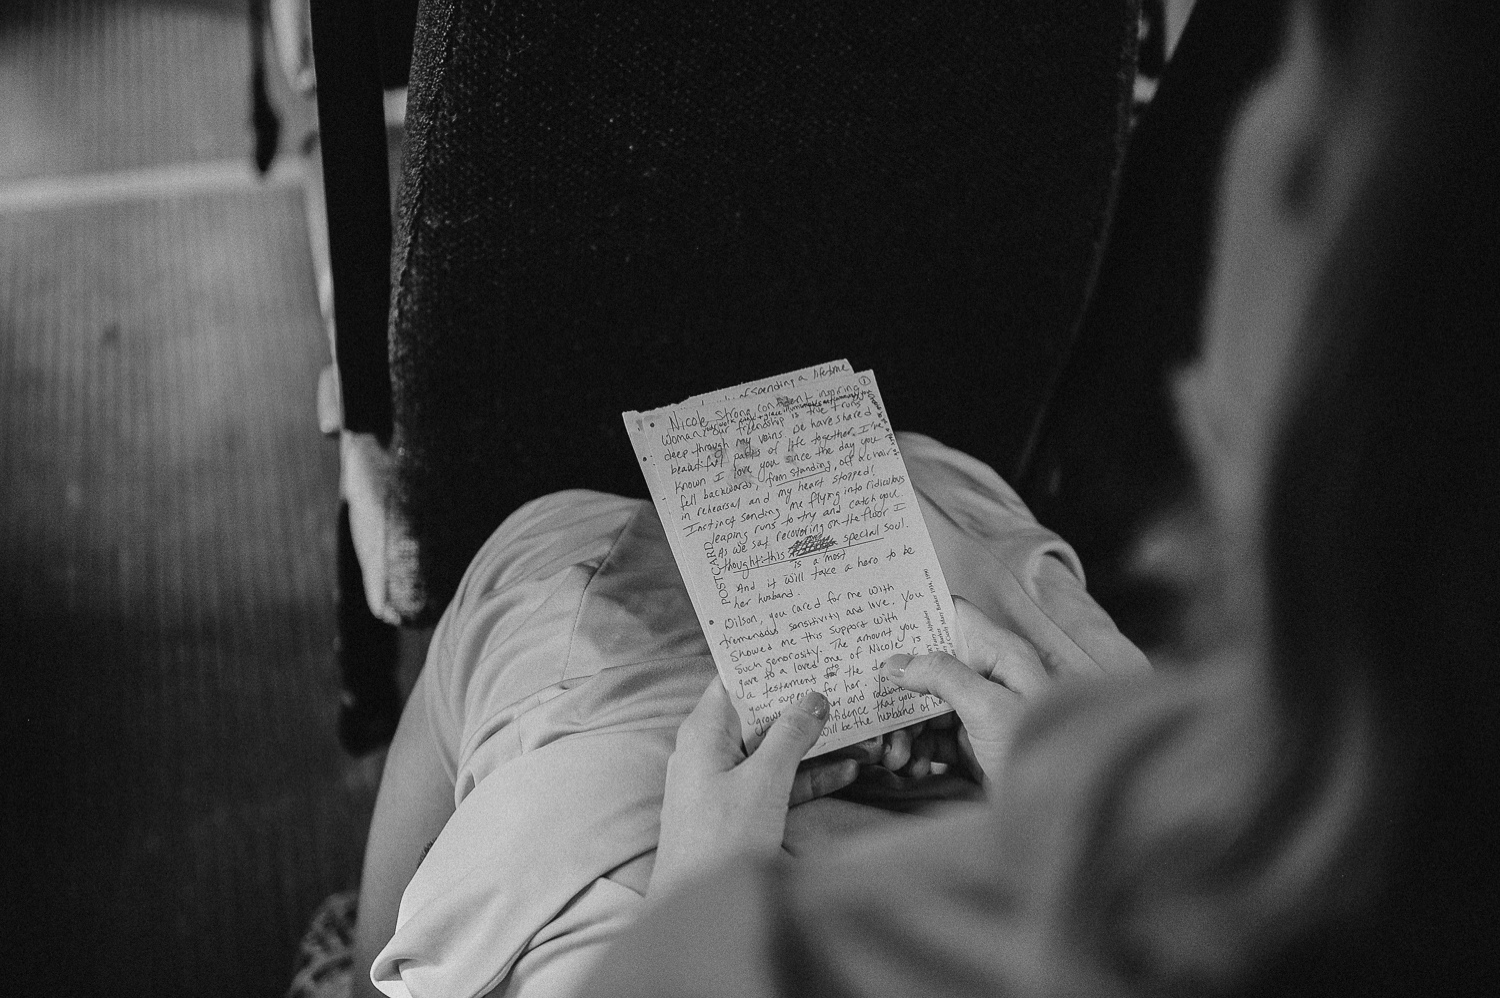 of spending a lifetime
①
Nicole, strong, confident inspiring
woman, our friendship is true & runs
deep through my veins. We have shared
beautiful paths of life together. I've
known I love you since the day you
fell backwards, from standing, off a chair
in rehearsal and my heart stopped!
Instinct sending me flying into ridiculous
leaping runs to try and catch you.
As we sat recovering on the floor I
thought: this is a most special soul.
And it will take a hero to be
her husband.
Wilson, you cared for me with
tremendous sensitivity and love. You
showed me this support with
such generosity. The amount you
gave to a loved one of Nicole is
a testament to the
your support for her. You
grow her and
confidence that you
will be the husband of her
POSTCARD